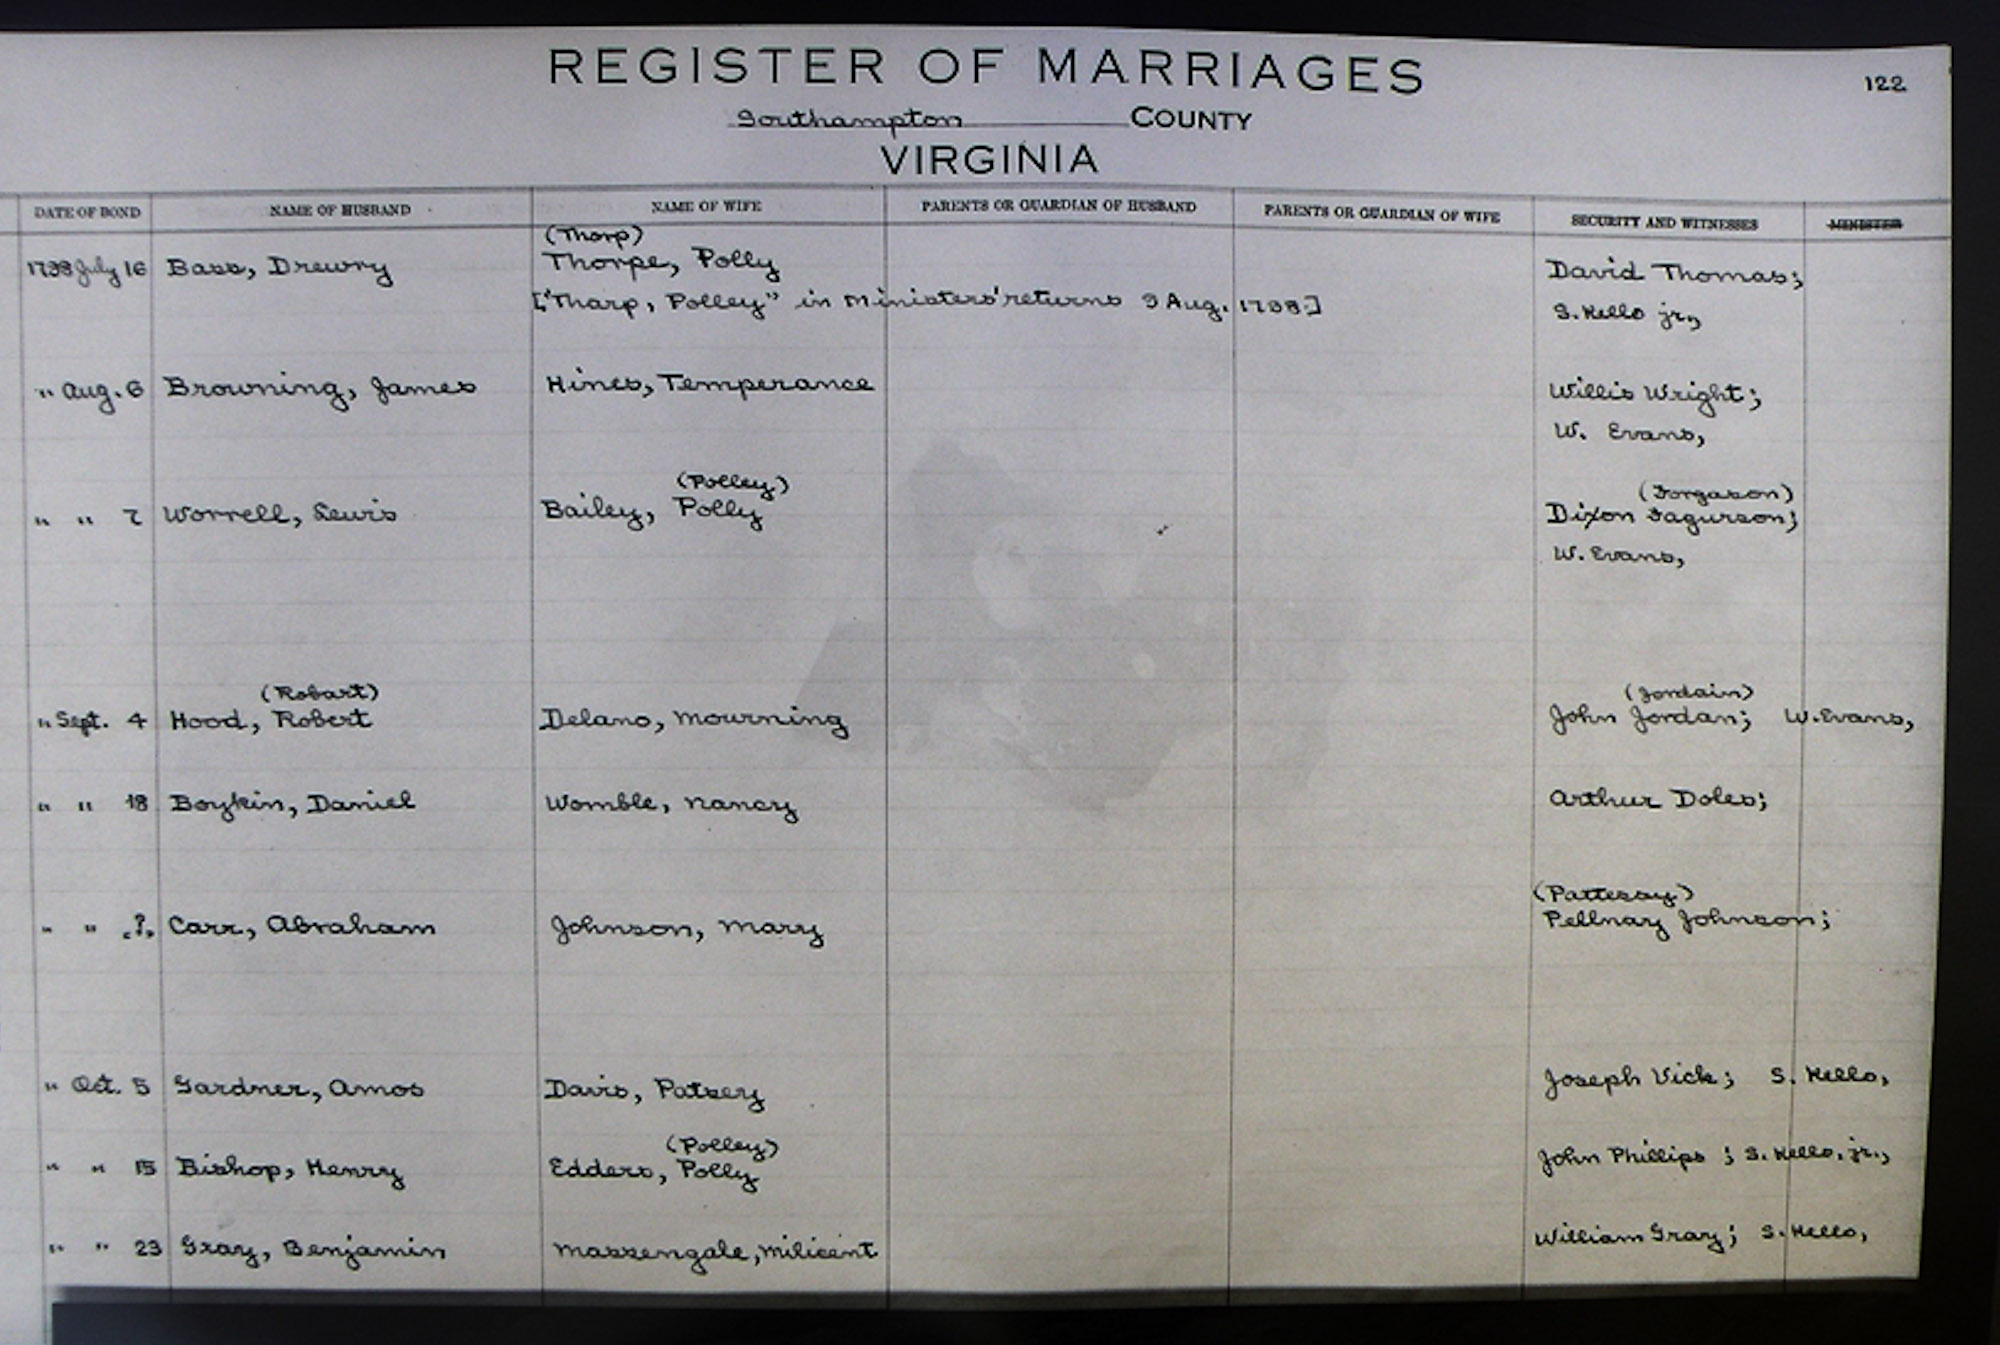 REGISTER OF MARRIAGES
122
Southampton COUNTY
VIRGINIA
DATE OF BOND NAME OF HUSBAND NAME OF WIFE PARENTS OR GUARDIAN OF HUSBAND PARENTS OR GUARDIAN OF WIFE SECURITY AND WITNESSES MINISTER
(Thorp)
1798 July 16 Bass, Drewry Thorpe, Polly David Thomas;
["Tharp, Polley" in Ministers' returns 9 Aug. 1798.] S. Kello jr.,
" Aug. 6 Browning, James Hines, Temperance Willis Wright;
W. Evans,
(Polley) (Forgason)
" " 7 Worrell, Lewis Bailey, Polly Dixon Fagurson;
W. Evans,
(Robart) (Jordain)
" Sept. 4 Hood, Robert Delano, Mourning John Jordan; W. Evans,
" " 18 Boykin, Daniel Womble, Nancy Arthur Doles;
(Pattesay)
" " ? Carr, Abraham Johnson, Mary Pellnay Johnson;
" Oct. 5 Gardner, Amos Davis, Patsey Joseph Vick; S. Kello,
(Polley)
" " 15 Bishop, Henry Edders, Polly John Phillips; S. Kello, jr.,
" " 23 Gray, Benjamin Massengale, Milicent William Gray; S. Kello,